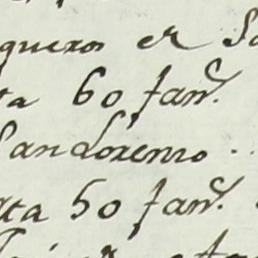 queros er Sa
ta 60 fanˢ.
San Lorenzo ..
ta 50 fanˢ.